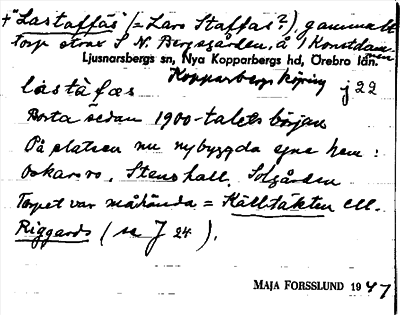 + "Lastaffas" (= Lars Staffas?) gammalt
torp strax S N. Bergsgården, å Konstdammen
Ljusnarsbergs sn, Nya Kopparbergs hd, Örebro län.
Kopparbergs köping j 22
lästàfæs
Borta sedan 1900-talets början
På platsen nu nybyggda egna hem:
Oskarsro, Stenshall, Solgården
Torpet var måhända = Källtäkten ell.
Riggards (se J 24).
MAJA FORSSLUND 1947